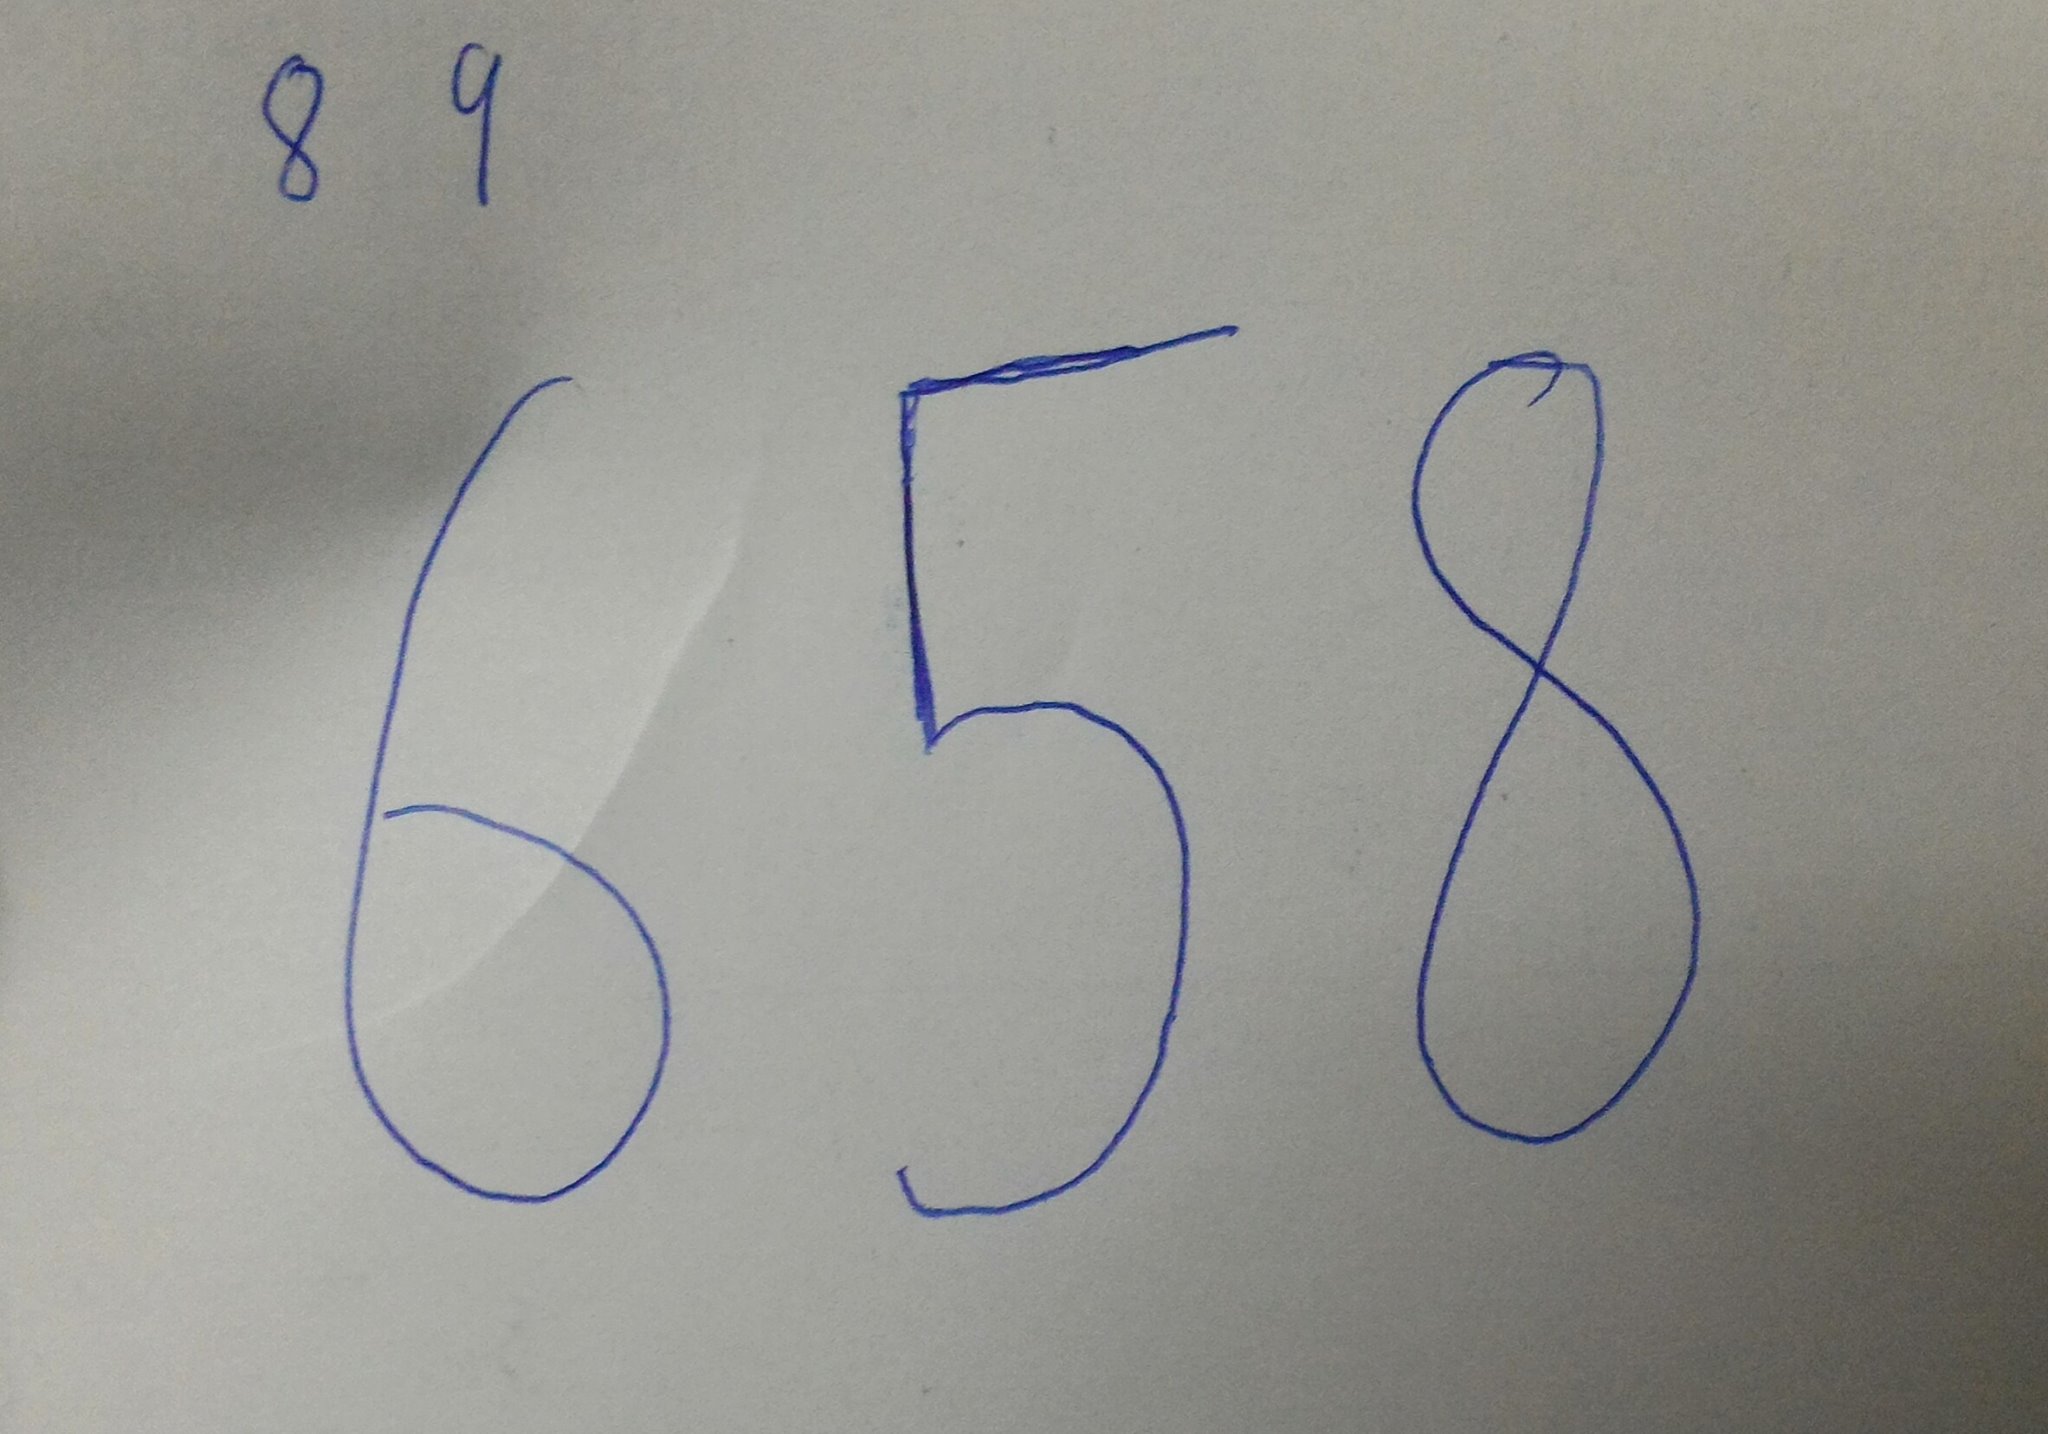 8 9
6 5 8